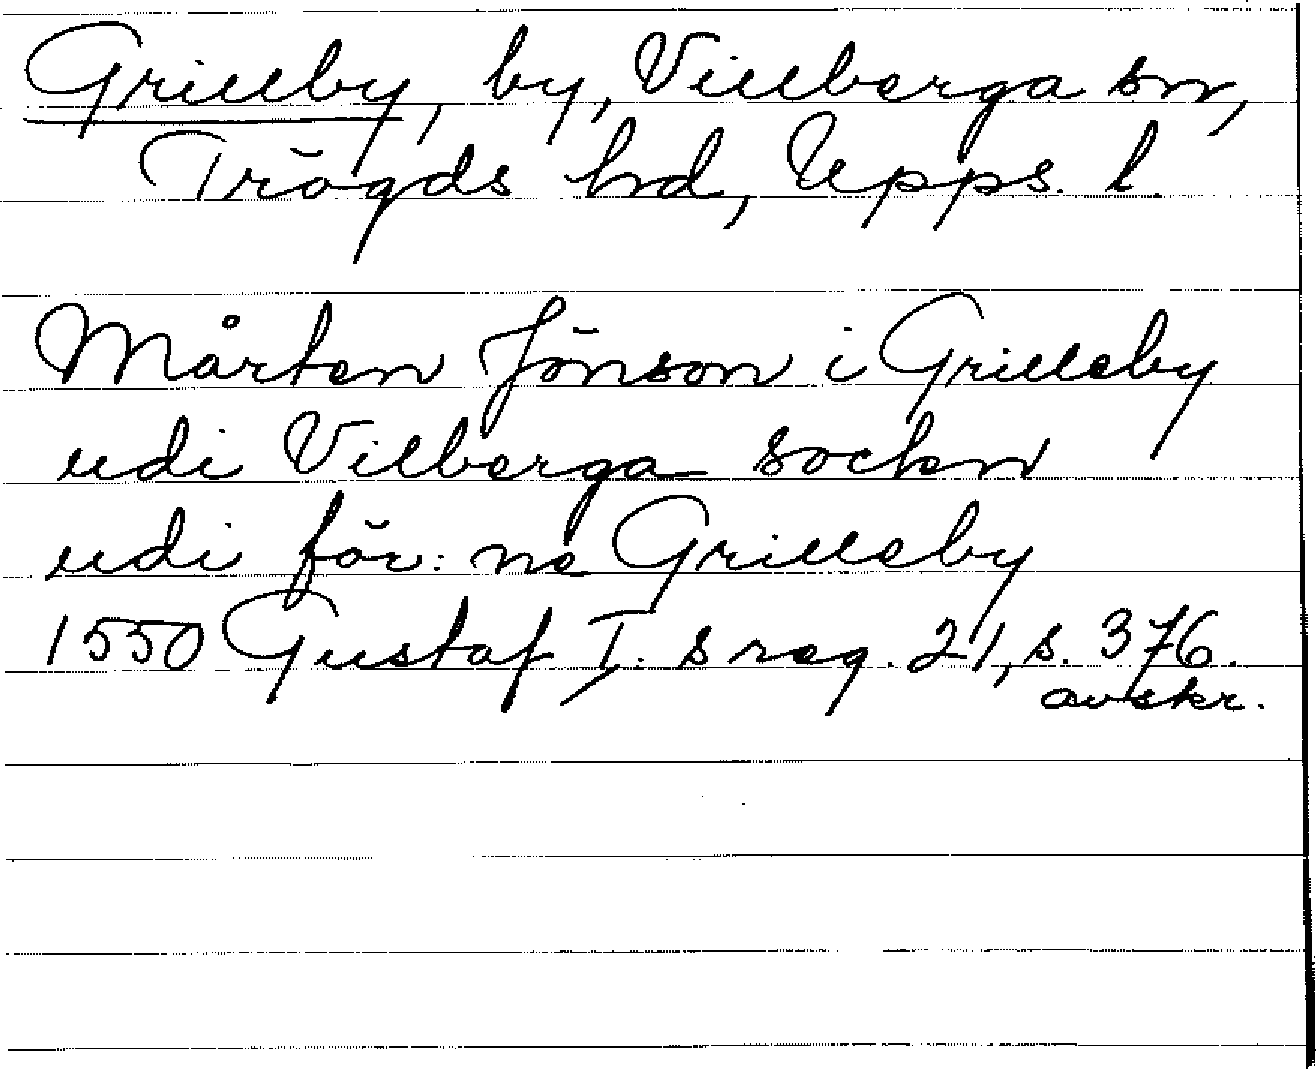 Grillby, by, Villberga sn,
Trögds hd, Upps. l.
Mårten Jönson i Grilleby
udi Vilberga socken
udi för: ne Grilleby
1550 Gustaf I:s reg. 21, s. 376.
avskr.